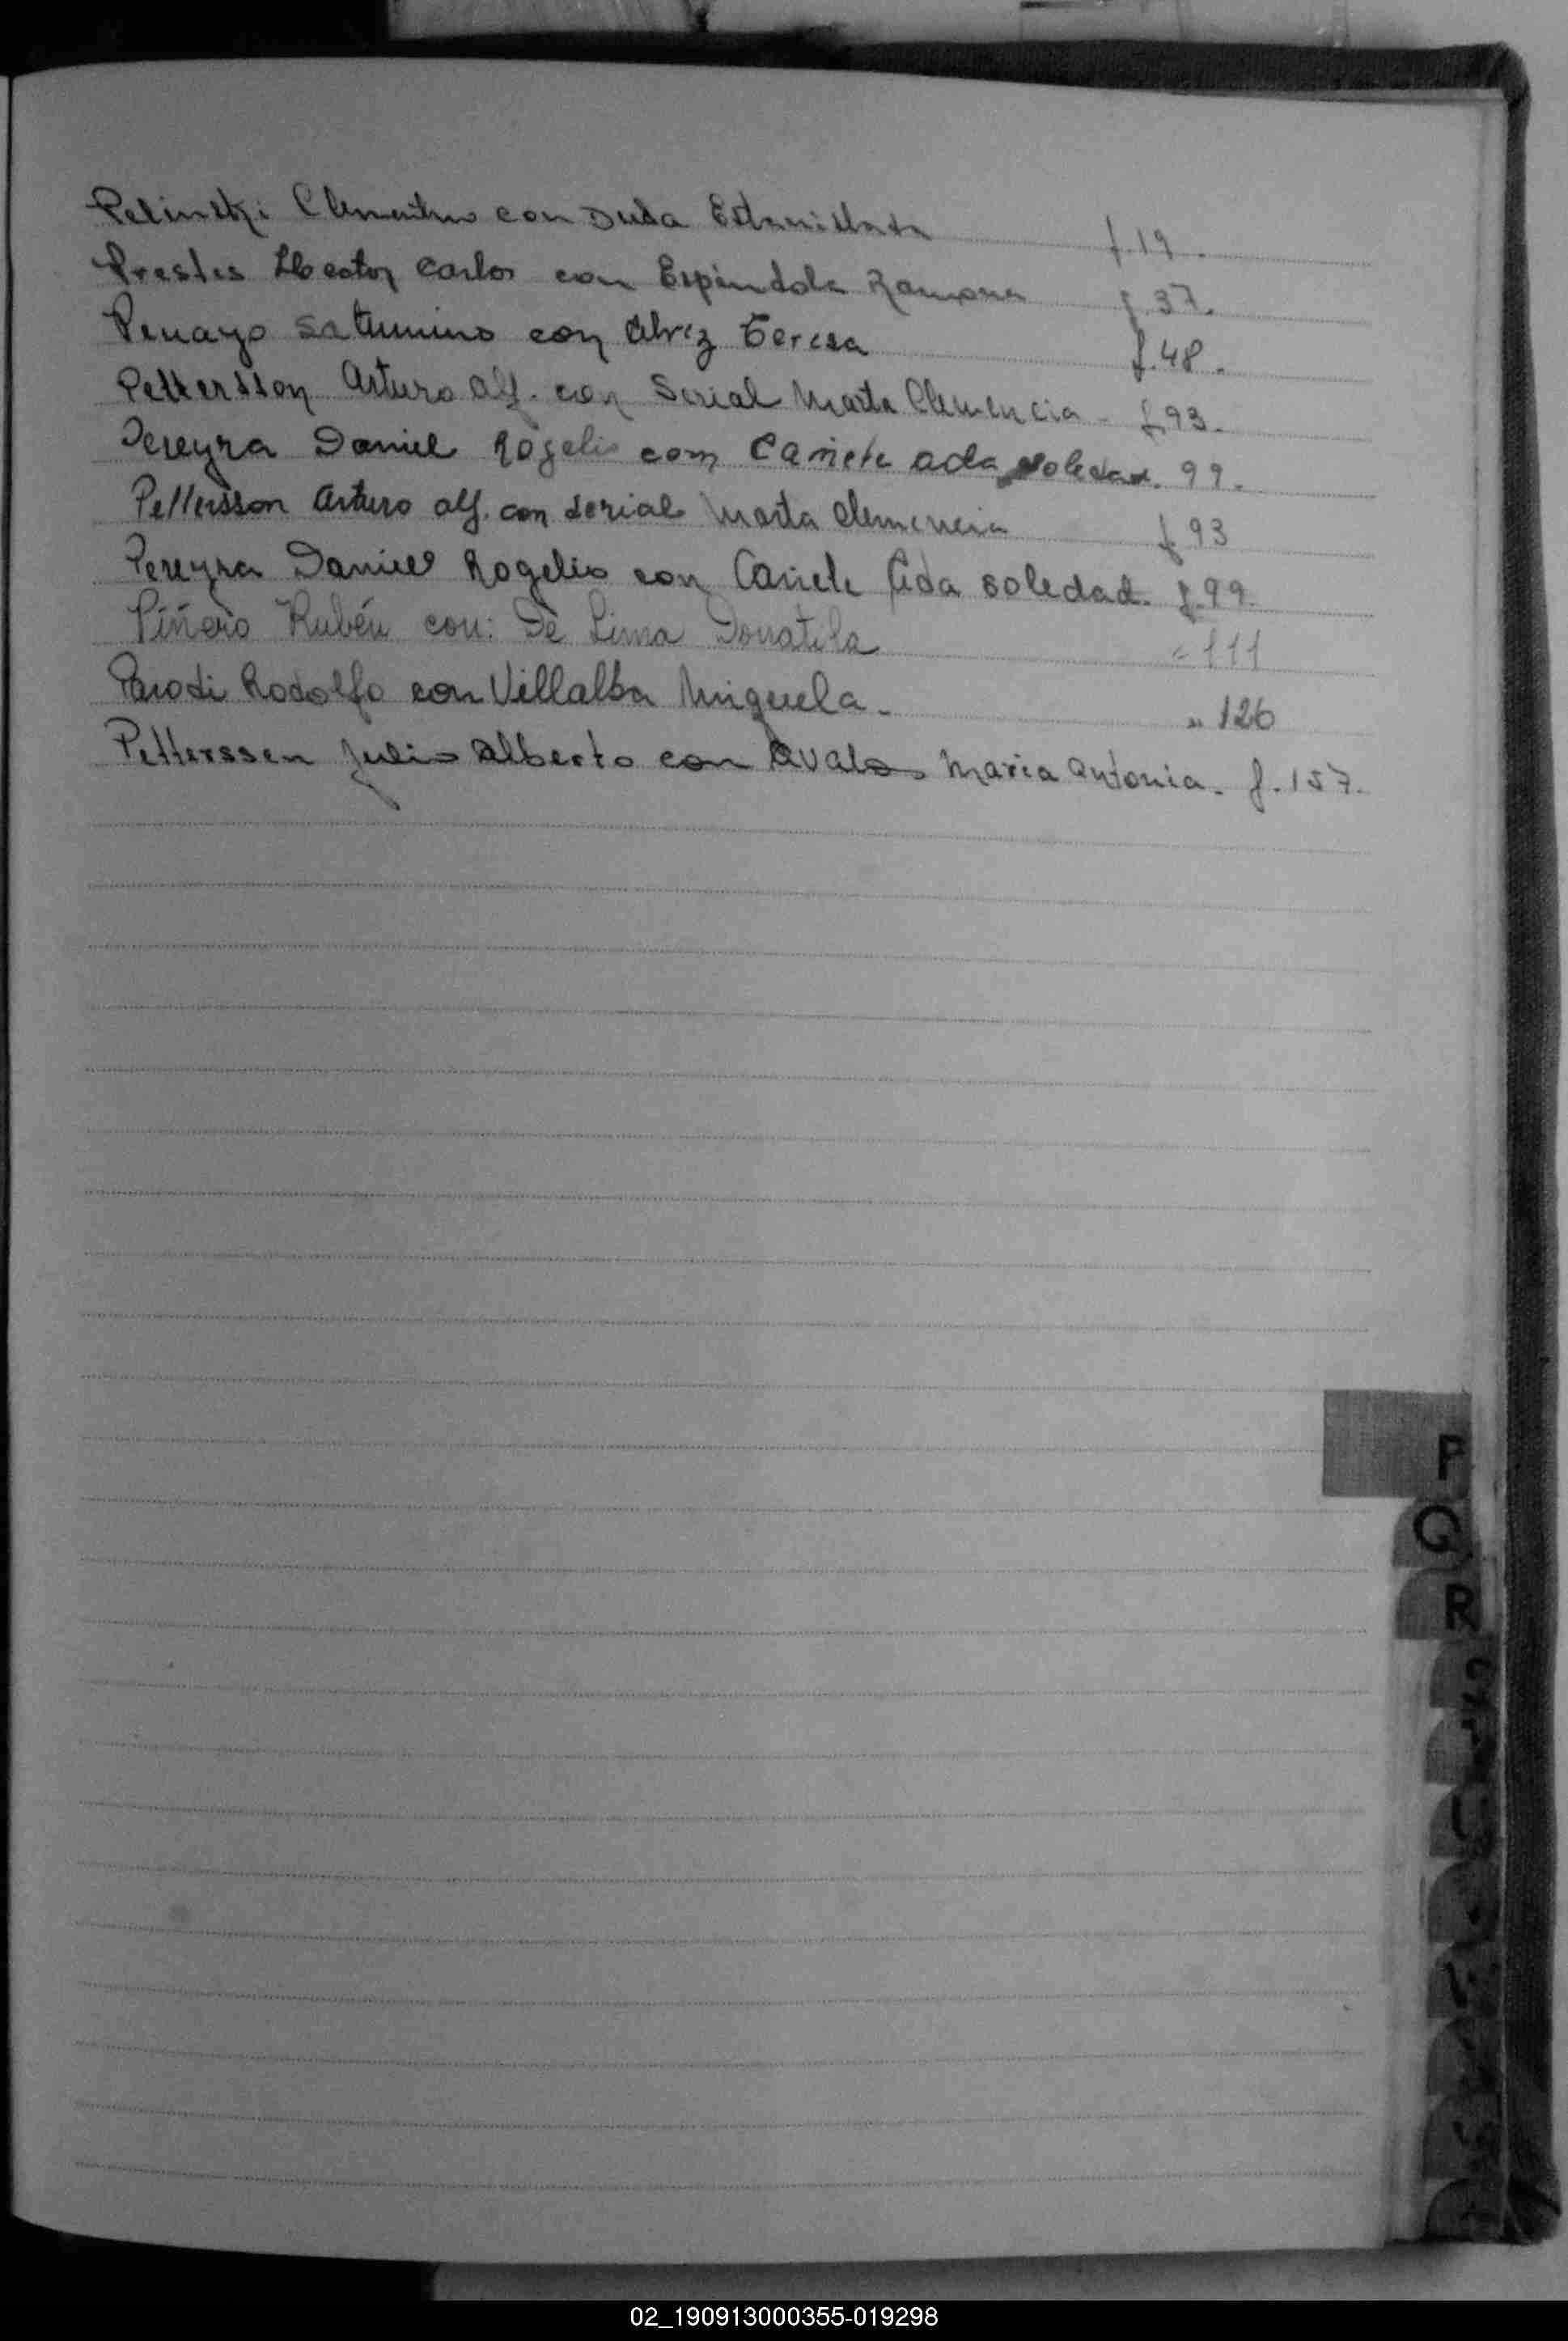 Pelinski Clementino con Duda Estanislada f. 19.
Prestes Hector Carlos con Espindola Ramona f. 37.
Penayo Saturnino con Alvez Teresa f. 48.
Pettersson Arturo Alf. con Serial Marta Clemencia - f. 93.
Pereyra Daniel Rogelio com Cañete Ada Soledad. 99.
Pettersson Arturo Alf. con Serial Marta Clemencia f. 93
Pereyra Daniel Rogelio con Cañete Ada Soledad. f. 99.
Piñero Rubén con: De Lima Donatila " 111
Parodi Rodolfo con Villalba Miguela. " 126
Petterssen Julio Alberto con Avalos Maria Antonia. f. 157.
P
Q
R
02_190913000355-019298